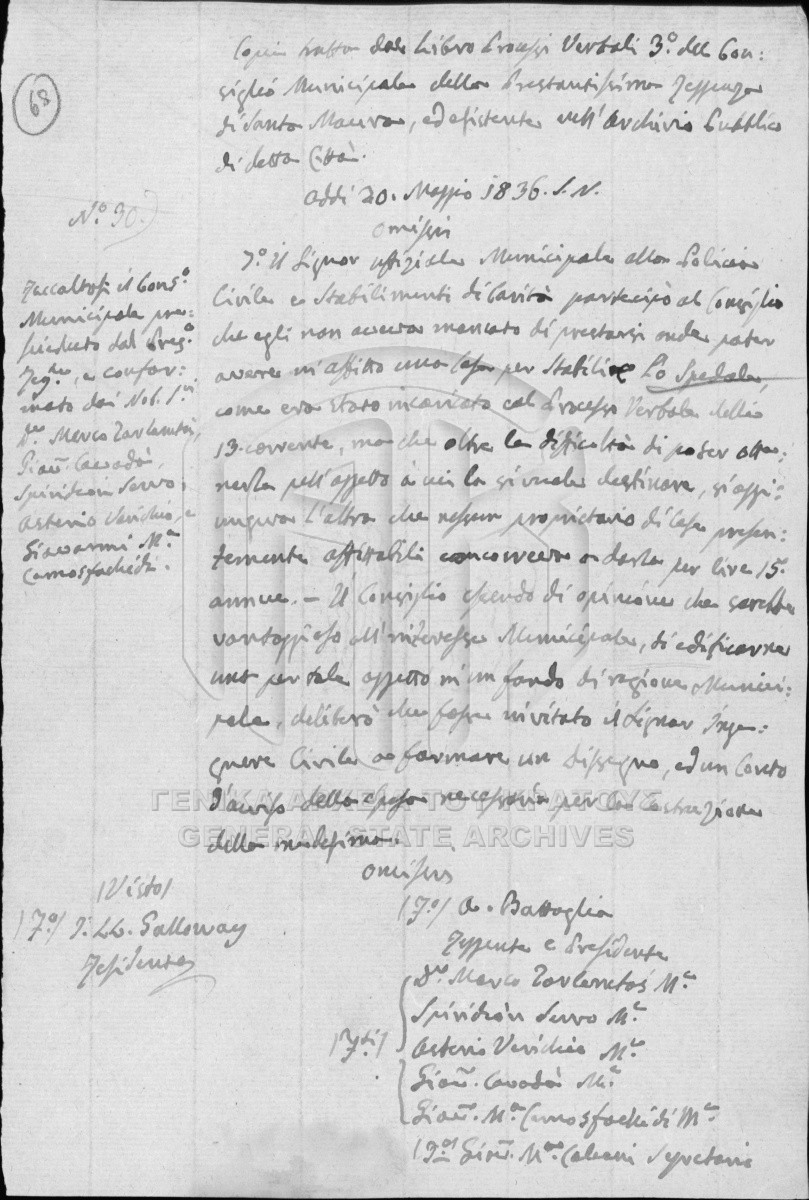 68
Copia tratta dal Libro Processi Verbali 3.º del Con:
siglio Municipale della Prestantissima Reggenza
di Santa Maura, ed esistente nell'Archivio Pubblico
di detta Città.
Addì 20. Maggio 1836. S. N.
omissis
Nº 30.
Raccoltosi il Cons.º
Municipale pre:
sieduto dal Preg.º
Regg.te, e confor:
mato dai Nob. S.ri
Dr. Marco Zarlambà,
Giov. Cavadà,
Spiridion Servo,
Asterio Verichio, e
Giovanni M.ª
Camosfachidi.
7.º Il Signor uffiziale Municipale alla Polizia
Civile e Stabilimenti di Carità partecipò al Consiglio
che egli non aveva mancato di prestarsi onde poter
avere in affitto una Casa per stabilire Lo Spedale,
come era stato incaricato col Processo Verbale delli
13. corrente, ma che oltre la difficoltà di poter otte:
nerla pell'oggetto a cui la si vuole destinare, si aggi:
ungeva l'altra che nessun proprietario di Case presen:
temente affittabili concorreva a darla per lire 15.
annue. – Il Consiglio essendo di opinione che sarebbe
vantaggioso all'interesse Municipale, di edificarne
una per tale oggetto in un fondo di ragione Munici:
pale, deliberò che fosse invitato il Signor Inge:
gnere Civile a formare un Dissegno, ed un Conto
d'avviso della spesa necessaria per la costruzione
della medesima.
omissis
ΓΕΝΙΚΑ ΑΡΧΕΙΑ ΤΟΥ ΚΡΑΤΟΥΣ
GENERAL STATE ARCHIVES
/Visto/
/F.º/ J. LL. Galloway
Residente
/F.º/ A. Battaglia
Reggente e Presidente
Dr. Marco M.e
Spiridion Servo M.e
/F.ti/ Asterio Verichio M.e
Giov. Cavadà M.e
Giov. M.ª Camosfachidi M.e
/F.º/ Giov. M.ª Segretario